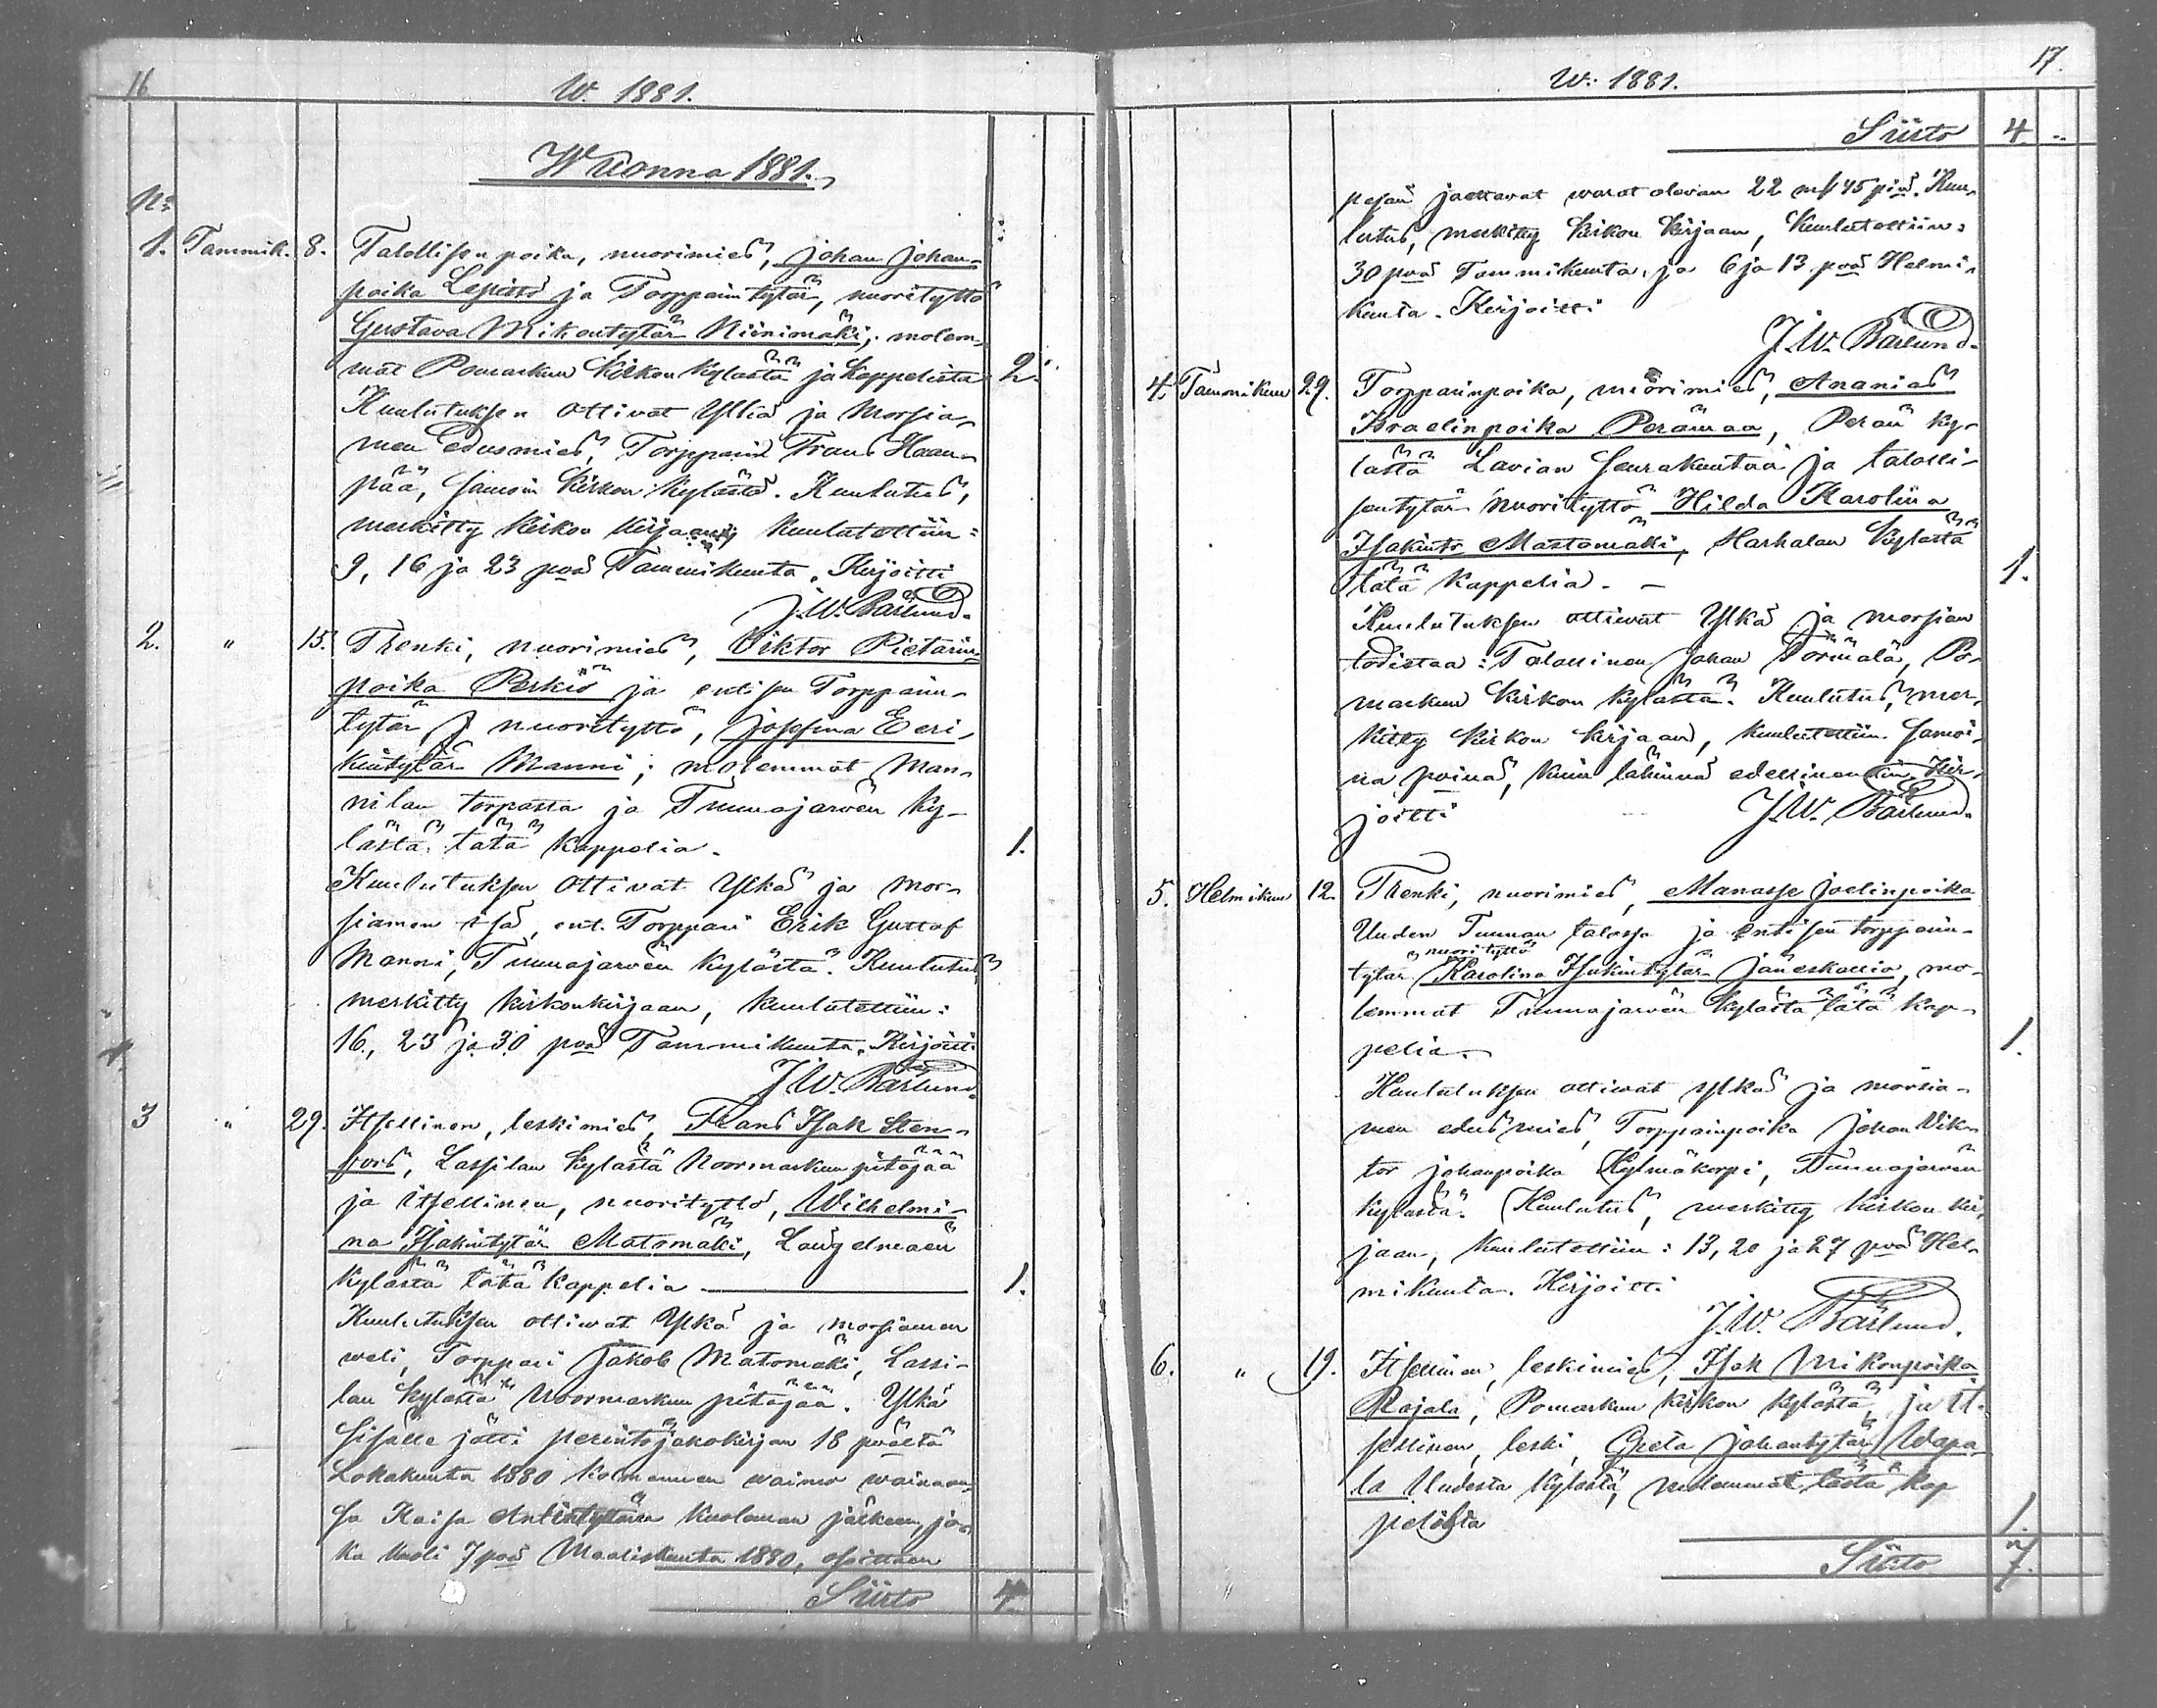 16
W. 1881.
Wuonna 1881.
No
1. Tammik. 8. Talollisen poika, nuorimies, Johan Johan-
poika Lepistö ja Torpparintytär, nuorityttö
Gustava Mikontytär Niinimäki, molem-
mat Pomarkun Kirkon kylästä ja kappelista 2.
Kuulutuksen ottivat Ylkä ja Morsia-
men Edusmies, Torppari Frans Haan-
pää, samoin Kirkon kylästä. Kuulutus,
merkitty Kirkon Kirjaan, kuulutettiin:
9, 16 ja 23 pvä Tammikuuta. Kirjoitti
J.W. Bärlund.
2. " 15. Trenki, nuorimies, Viktor Pietarin-
poika Perkiö ja entisen Torpparin-
tytär nuorityttö, Josefina Eeri-
kintytär Manni; molemmat Man-
nilan torpasta ja Tuunajärven ky-
lästä tätä kappelia. 1.
Kuulutuksen Ottivat Ylkä ja mor-
siamen isä, ent. Torppari Erik Gustaf
Manni, Tuunajärven kylästä. Kuulutus,
merkitty kirkonkirjaan, kuulutettiin:
16, 23 ja 30 pvä Tammikuuta. Kirjoitti
J.W. Bärlund.
3 " 29. Itsellinen, leskimies, Frans Isak Sten-
fors, Lassilan kylästä Noormarkun pitäjää
ja itsellinen, nuorityttö, Wilhelmi-
na Isakintytär Matomäki, Längelmaen
kylästä tätä kappelia. 1.
Kuulutuksen ottivat Ylkä ja morsiamen
weli, Torppari Jakob Matomäki, Lassi-
lan kylästä Noormarkun pitäjää. Ylkä
sisälle jätti perintöjakokirjan 18 pvältä
Lokakuuta 1880 kolmannen waimo wainaan-
sa Kaisa Antintyttären kuoleman jälkeen, jo-
ka kuoli 7 pvä Maaliskuuta 1880, osittaen
Siirto 4.
17.
W: 1881.
Siirto 4. "
pesän jaettavat warat olevan 22 mk 45 piä. Kuu-
lutus, merkitty Kirkon Kirjaan, Kuulutettiin:
30 pvä Tammikuuta, ja 6 ja 13 pvä Helmi-
kuuta. Kirjoitti
J.W. Bärlund.
4. Tammikuu 29. Torpparinpoika, nuorimies, Ananias
Israelinpoika Perämaa, Perän ky-
lästä Lavian Seurakuntaa ja talolli-
sentytär nuorityttö Hilda Karoliina
Isakint: Mastomäki, Harhalan Kylästä
tätä kappelia. 1.
Kuulutuksen ottivat Ylkä ja morsian
todistaa: Talollinen Johan Törmälä, Po-
markun Kirkon kylästä. Kuulutus, mer-
kitty Kirkon Kirjaan, kuulutettiin samoi-
na päinä, kuin lähinnä edellinenkin. Kir-
joitti J.W. Bärlund.
5. Helmikuu 12. Trenki, nuorimies, Manasse Joelinpoika
Uuden Tuunan talossa ja Entisen torpparin-
nuorityttö
tytär Karolina Isakintytär Jäneskallio, mo-
lemmat Tuunajärven kylästä tätä kap-
pelia. 1.
Kuulutuksen ottivat ylkä ja morsia-
men edusmies, Torpparinpoika Johan Vik-
tor Johanpoika Kylmäkorpi, Tuunajärven
kylästä. Kuulutus, merkitty Kirkon kir-
jaan, kuulutettiin: 13, 20 ja 27 pvä Hel-
mikuuta. Kirjoitti
J.W. Bärlund.
6. " 19. Itsellinen, leskimies, Isak Mikonpoika
Rajala, Pomarkun Kirkon kylästä, ja it-
sellinen, leski, Greta Johantytär Wapa-
la Uudesta kylästä, molemmat tästä kap
pelista 1.
Siirto 7.